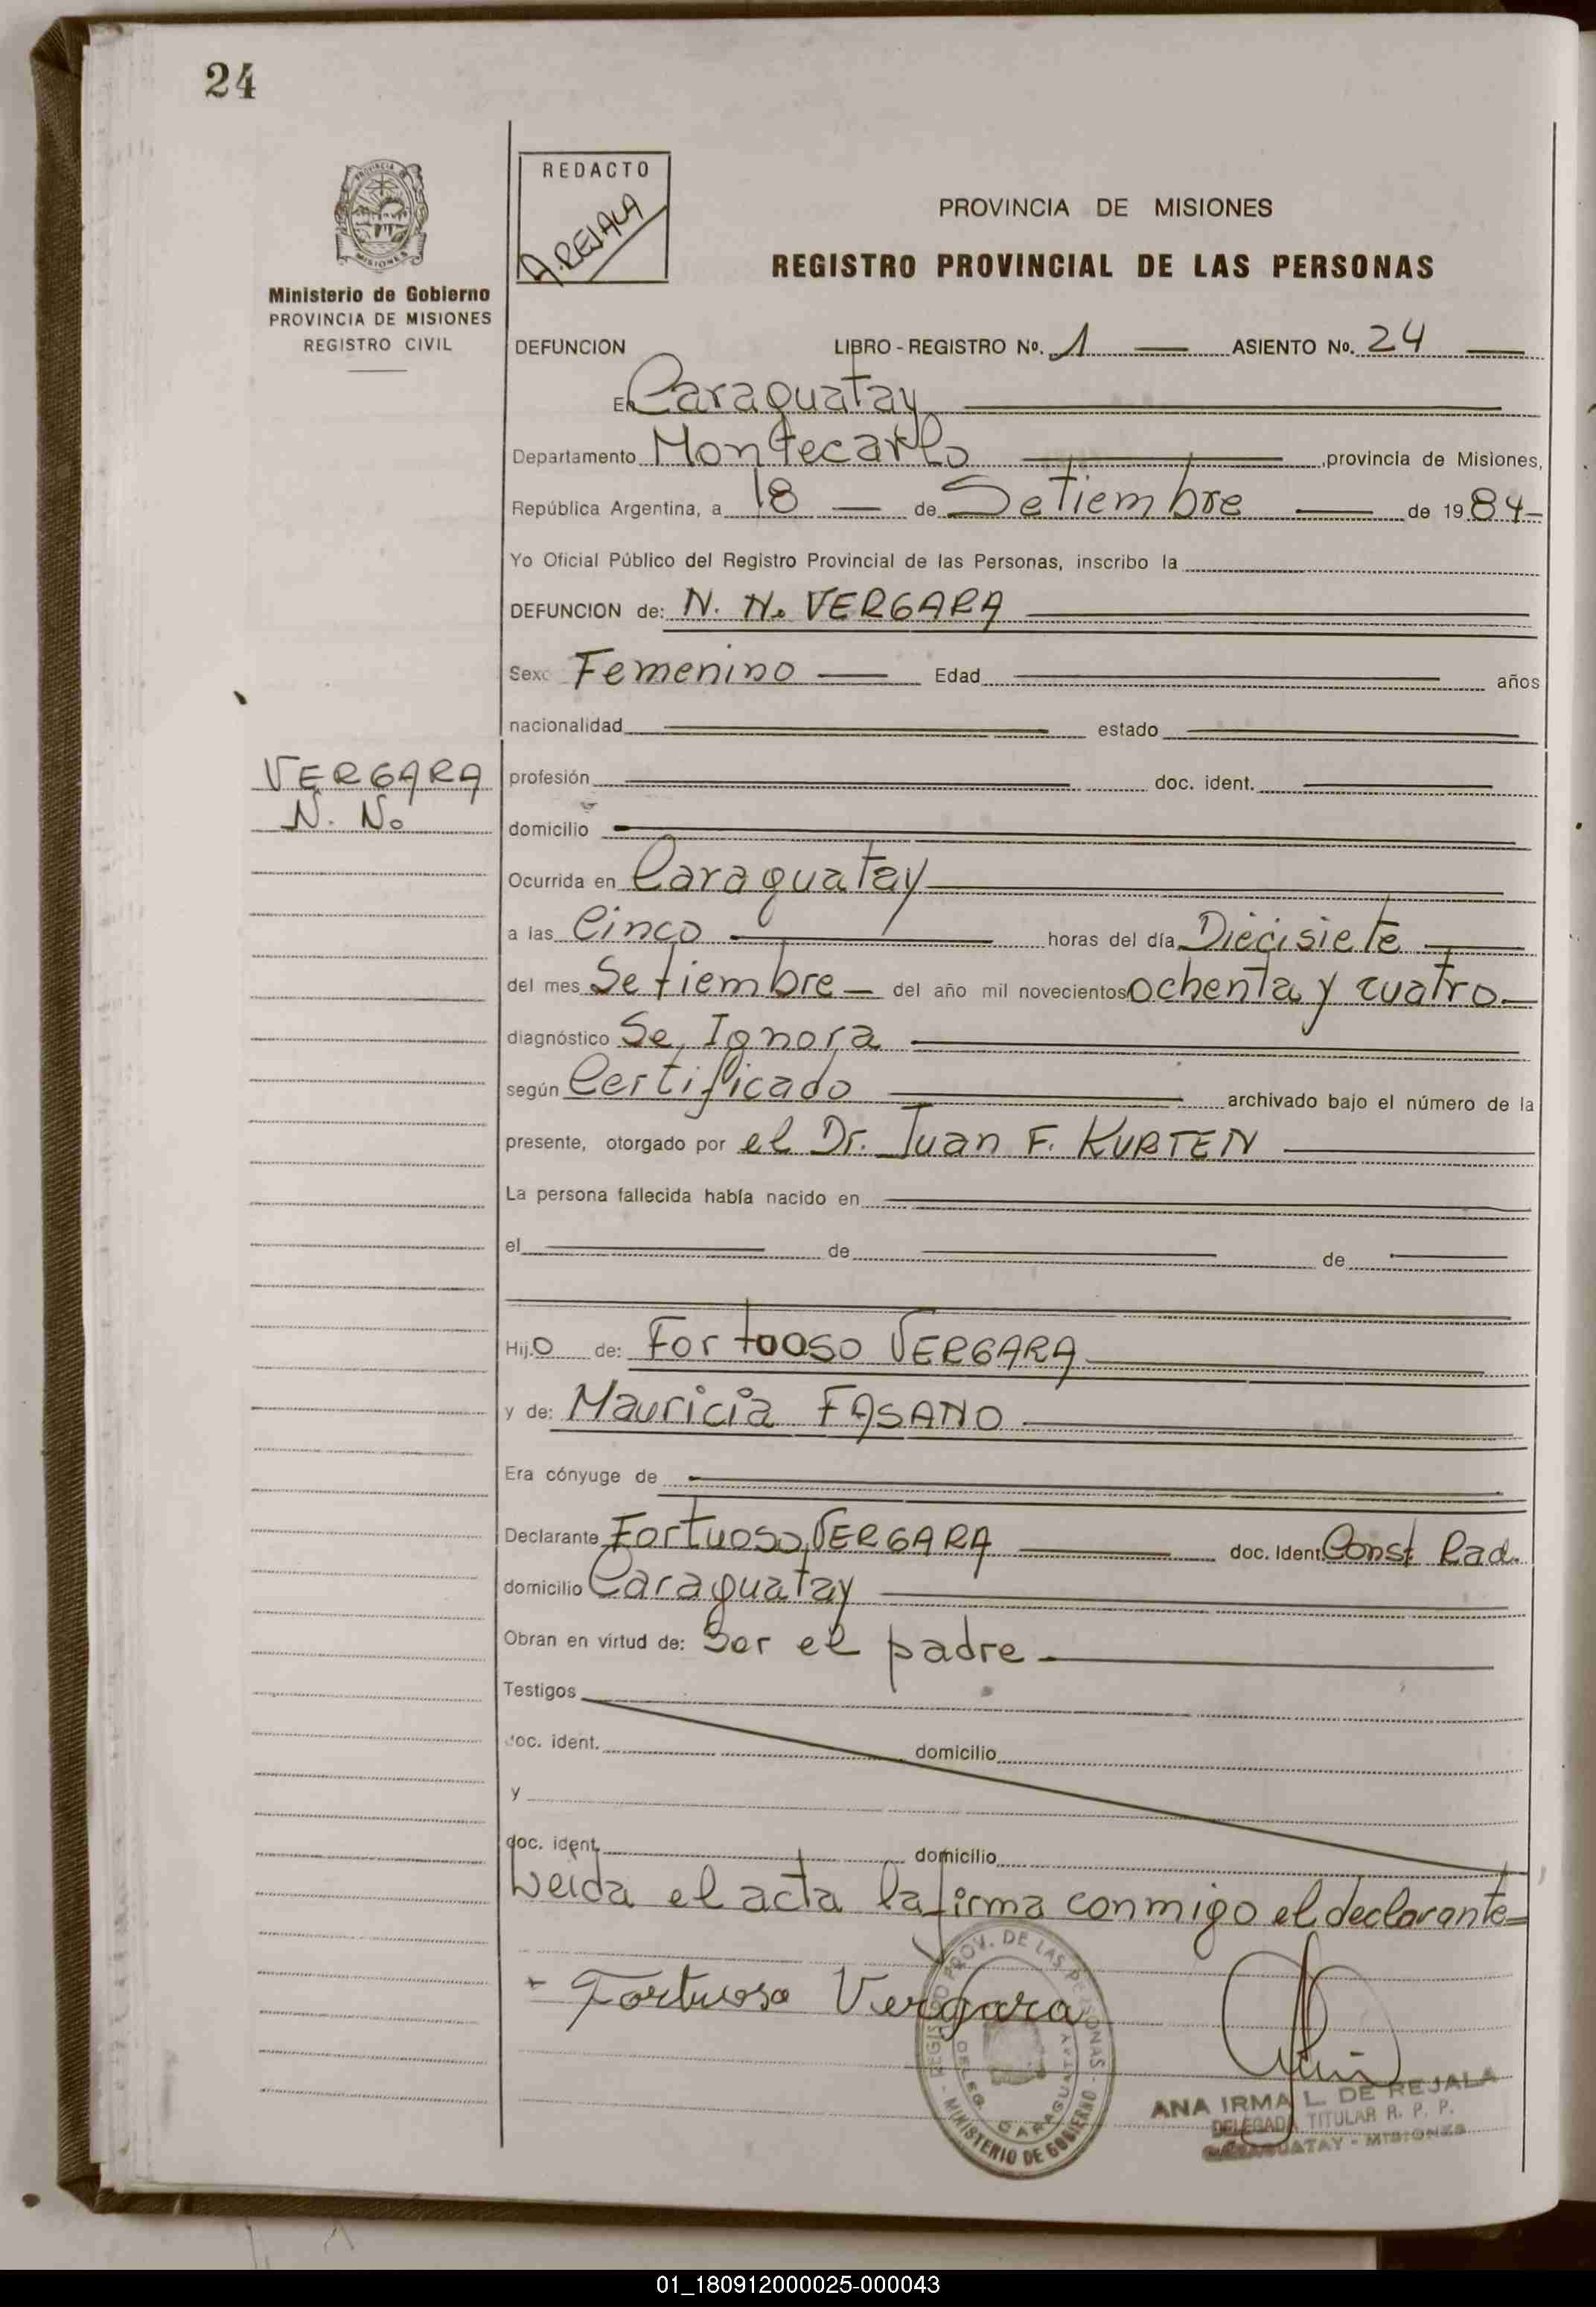 24
REDACTO
A. REJALA
PROVINCIA DE MISIONES
REGISTRO PROVINCIAL DE LAS PERSONAS
Ministerio de Gobierno
PROVINCIA DE MISIONES
REGISTRO CIVIL
DEFUNCION LIBRO - REGISTRO Nº. 1 ASIENTO Nº. 24
En Caraguatay
Departamento Montecarlo provincia de Misiones,
República Argentina, a 18 de Setiembre de 1984
Yo Oficial Público del Registro Provincial de las Personas, inscribo la
DEFUNCION de: N. N. VERGARA
Sexo Femenino Edad años
nacionalidad estado
VERGARA
N. N.
profesión doc. ident.
domicilio
Ocurrida en Caraguatay
a las Cinco horas del día Diecisiete
del mes Setiembre del año mil novecientos ochenta y cuatro
diagnóstico Se Ignora
según Certificado archivado bajo el número de la
presente, otorgado por el Dr. Juan F. KURTEN
La persona fallecida había nacido en
el de de
Hijo de: Fortuoso VERGARA
y de: Mauricia FASANO
Era cónyuge de
Declarante Fortuoso VERGARA doc. Ident. Const. Rad.
domicilio Caraguatay
Obran en virtud de: Ser el padre
Testigos
doc. ident. domicilio
y
doc. ident. domicilio
Leida el acta la firma conmigo el declarante
Fortuoso Vergara
REGISTRO PROV. DE LAS PERSONAS - MINISTERIO DE GOBIERNO
DELEG. CARAGUATAY
ANA IRMA L. DE REJALA
DELEGADA TITULAR R. P. P.
CARAGUATAY - MISIONES
01_180912000025-000043